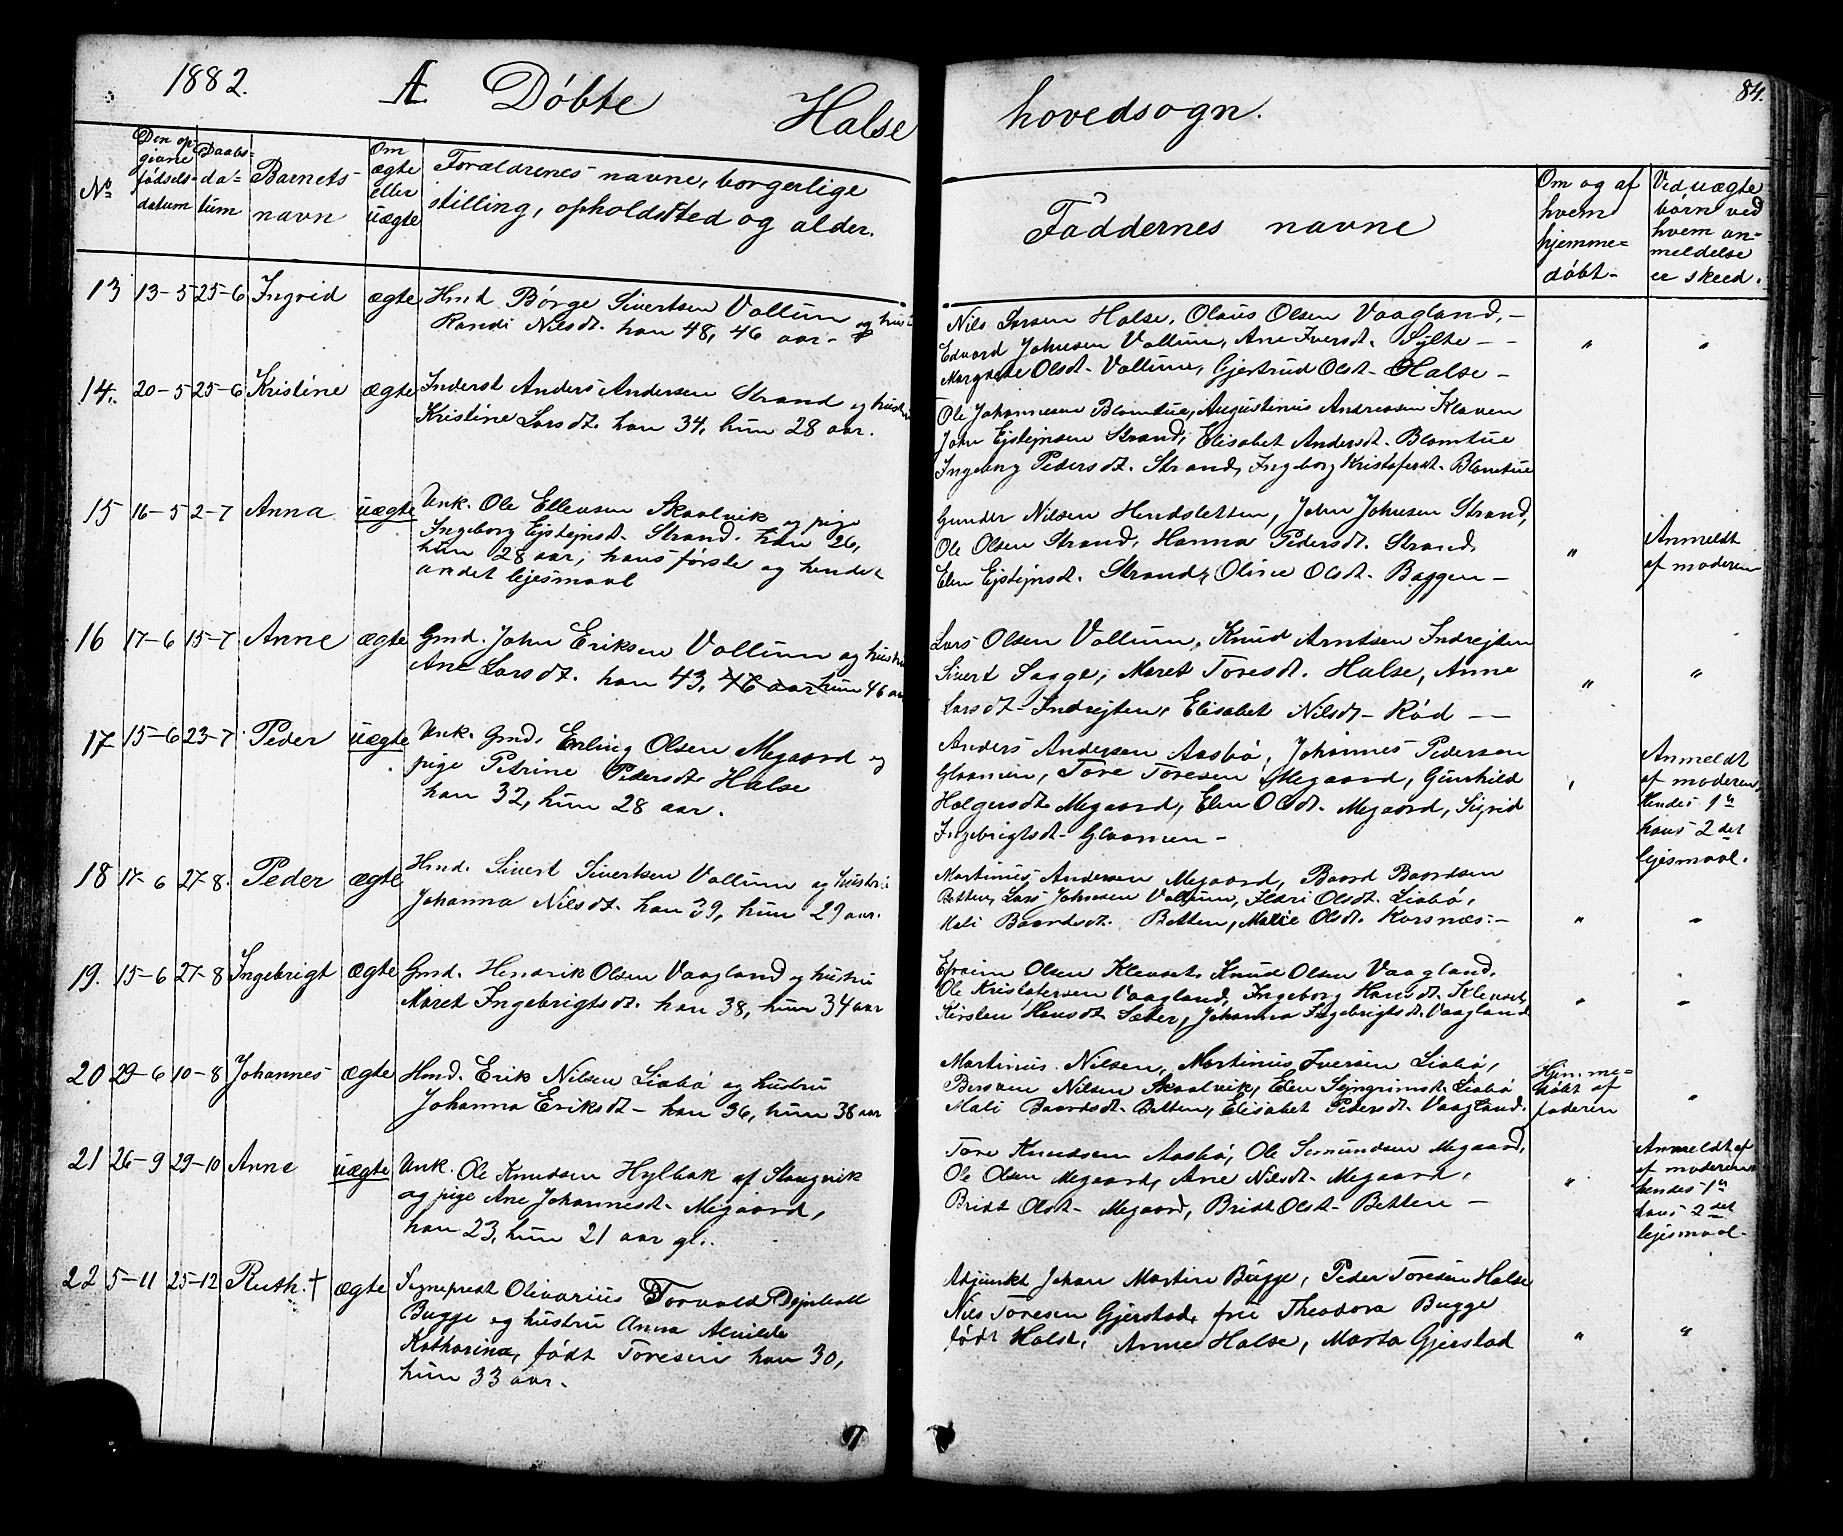 1882. A. Døbte Halse hovedsogn. 84.
No
Den op-
givne
fødsels-
datum
Daabs-
da-
tum
Barnets-
navn
Om
ægte
eller
uægte
Forældrenes navne, borgerlige
stilling, opholdsted og alder.
Faddernes navne
Om og af
hvem
hjemme-
døbt-
Ved uægte
børn ved
hvem an-
meldelse
er skeed.
13 13-5 25-6 Ingrid ægte Hmd Børge Sivertsen Vollum og hustru
Randi Nilsdt. han 48, 46 aar.
Nils Larsen Halse, Olaus Olsen Vaagland, -
Edvard Johnsen Vollum, Ane Iversdt. Sylte - -
Margrete Olsdt- Vollum, Gjertrud Olsdt- Halse -
" "
14. 20-5 25-6 Kristine ægte Inderst Anders Andersen Strand og hustru
Kristine Larsdt. han 34, hun 28 aar.
Ole Johannesen Blomtue, Augustinus Andreasen Klaven
John Ejstejnsen Strand, Elisabet Andersdt- Blomtue
Ingeborg Pedersdt. Strand, Ingeborg Kristofersdt- Blomtue
15 16-5 2-7 Anna uægte Unk. Ole Ellevsen Skaalvik og pige
Ingeborg Ejstejnsdt- Strand. han 26,
hun 28 aar, hans første og hendes
andet lejesmaal
Gunder Nilsen Hendsletten, John Johnsen Strand,
Ole Olsen Strand, Hanna Pedersdt. Strand,
Elen Ejstejnsdt. Strand, Oline Olsdt- Baggen -
"
Anmeldt
af moderen
16 17-6 15-7 Anne ægte Gmd. John Eriksen Vollum og hustru
Ane Larsdt. han 43, 46 aar hun 46 aar
Lars Olsen Vollum, Knud Arntsen Indrejten
Sivert Sagge, Maret Toresdt. Halse, Anne
Larsdt- Indrejten, Elisabet Nilsdt- Rød - -
" "
17 15-6 23-7 Peder uægte Unk. Gmd. Erling Olsen Megaard og
pige Petrine Pedersdt. Halse
han 32, hun 28 aar.
Anders Andersen Aasbø, Johannes Pedersen
Glaamen, Tore Toresen Megaard, Gunhild
Holgersdt- Megaard, Elen Olsdt. Megaard, Sigrid
Ingebrigtsdt- Glaamen -
"
Anmeldt
af moderen,
hendes 1ste
hans 2det
lejesmaal.
18 17-6 27-8. Peder ægte Hmd. Sivert Sivertsen Vollum og hustru
Johanna Nilsdt. han 39, hun 29 aar.
Martinus Andersen Megaard, Baard Baardsen
Betten, Lars Johnsen Vollum, Ildri Olsdt. Liabø,
Mali Baardsdt. Betten, Marie Olsdt. Korsnæs. -
" "
19. 15-6 27-8 Ingebrigt ægte Gmd. Hendrik Olsen Vaagland og hustru
Maret Ingebrigtsdt. han 38, hun 34 aar
Efraim Olsen Klevset, Knud Olsen Vaagland,
Ole Kristofersen Vaagland, Ingeborg Hansdt. Klevset,
Kirsten Hansdt. Sæter, Johanna Ingebrigtsdt. Vaagland
" "
20 29-6 10-8 Johannes ægte Hmd. Erik Nilsen Liabø og hustru
Johanna Eriksdt- han 36, hun 38 aar
Martinus Nilsen, Martinus Iversen Liabø,
Bersven Nilsen Skaalvik, Elen Sejngrimsdt. Liabø
Mali Baardsdt. Betten, Elisabet Pedersdt. Vaagland.
Hjemme-
døbt af
faderen
"
21 26-9 29-10 Anne uægte Unk. Ole Knudsen Hylbak af Stangvik
og pige Ane Johannesdt- Megaard,
han 23, hun 21 aar gl.
Tore Knudsen Aasbø, Ole Semundsen Megaard,
Ole Olsen Megaard, Ane Nilsdt- Megaard,
Bridt Olsdt- Megaard, Bridt Olsdt- Betten -
"
Anmeldt af
af moderen
hendes 1ste
hans 2det
lejesmaal-
22 5-11 25-12 Ruth. † ægte Sogneprest Olivarius Torvald
Bugge og hustru Anna Alvilde
Katharina, født Toresen han 30,
hun 33 aar.
Adjunkt Johan Martin Bugge, Peder Toresen Halse
Nils Toresen Gjerstad, frue Theodora Bugge
født Holst, Anne Halse, Marta Gjerstad
" "